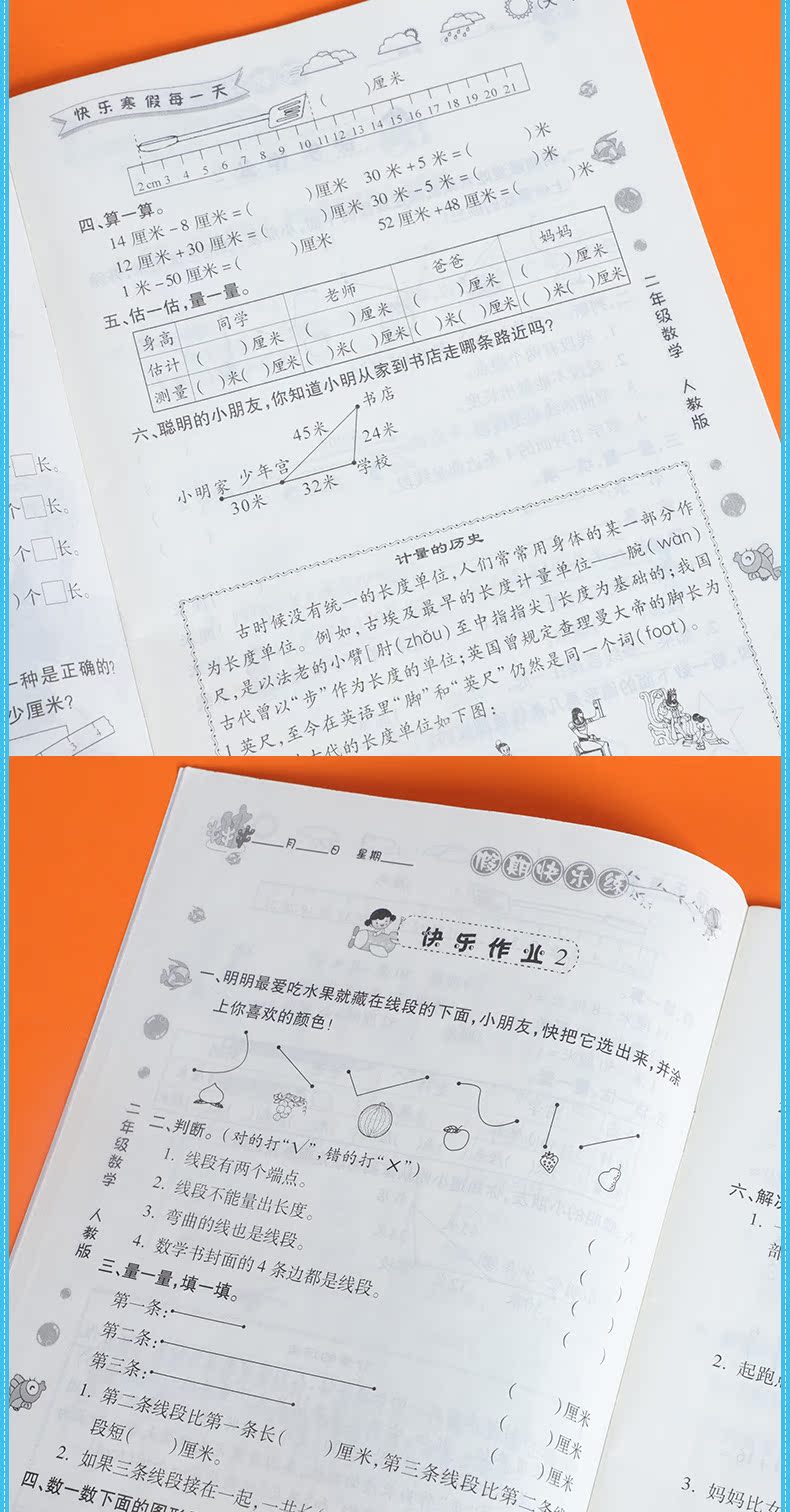 快乐寒假每一天
(　　)厘米
2cm 3 4 5 6 7 8 9 10 11 12 13 14 15 16 17 18 19 20 21
四、算一算。
14厘米－8厘米＝(　　)厘米　30米＋5米＝(　　)米
12厘米＋30厘米＝(　　)厘米　30米－5米＝(　　)米
1米－50厘米＝(　　)厘米　52厘米＋48厘米＝(　　)米
五、估一估，量一量。
身高　同学　老师　爸爸　妈妈
估计　(　　)厘米　(　　)厘米　(　　)厘米　(　　)厘米
测量　(　)米(　)厘米　(　)米(　)厘米　(　)米(　)厘米　(　)米(　)厘米
六、聪明的小朋友，你知道小明从家到书店走哪条路近吗？
书店
45米
24米
小明家　少年宫
学校
30米
32米
二年级数学　人教版
计量的历史
古时候没有统一的长度单位，人们常常用身体的某一部分作
为长度单位。例如，古埃及最早的长度计量单位——腕(wàn)
尺，是以法老的小臂[肘(zhǒu)至中指指尖]长度为基础的；我国
古代曾以“步”作为长度的单位；英国曾规定查理曼大帝的脚长为
1英尺，至今在英语里“脚”和“英尺”仍然是同一个词(foot)。
古代的长度单位如下图：
□长。
个□长。
个□长。
)个□长。
一种是正确的？
少厘米？
3 4
月　日　星期
假期快乐练
快乐作业2
一、明明最爱吃水果就藏在线段的下面，小朋友，快把它选出来，并涂
上你喜欢的颜色！
二、判断。(对的打“√”，错的打“×”)
1. 线段有两个端点。(　　)
2. 线段不能量出长度。(　　)
3. 弯曲的线也是线段。(　　)
4. 数学书封面的4条边都是线段。(　　)
三、量一量，填一填。
第一条：(　　)厘米
第二条：(　　)厘米
第三条：(　　)厘米
1. 第二条线段比第一条长(　　)厘米，第三条线段比第二条线
段短(　　)厘米。
2. 如果三条线段接在一起，一共长
四、数一数下面的图形
二年级数学　人教版
六、解决
1.
部
2. 起跑
3. 妈妈比女